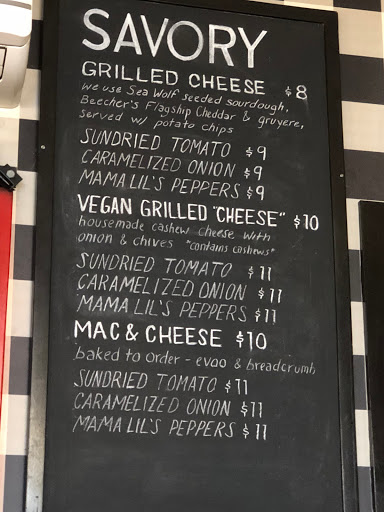 SAVORY
GRILLED CHEESE $8
we use Sea Wolf seeded sourdough,
Beecher's Flagship Cheddar & gruyere,
served w/ potato chips
SUNDRIED TOMATO $9
CARAMELIZED ONION $9
MAMA LIL'S PEPPERS $9
VEGAN GRILLED "CHEESE" $10
housemade cashew cheese with
onion & chives *contains cashews*
SUNDRIED TOMATO $11
CARAMELIZED ONION $11
MAMA LIL'S PEPPERS $11
MAC & CHEESE $10
baked to order - evoo & breadcrumb
SUNDRIED TOMATO $11
CARAMELIZED ONION $11
MAMA LIL'S PEPPERS $11